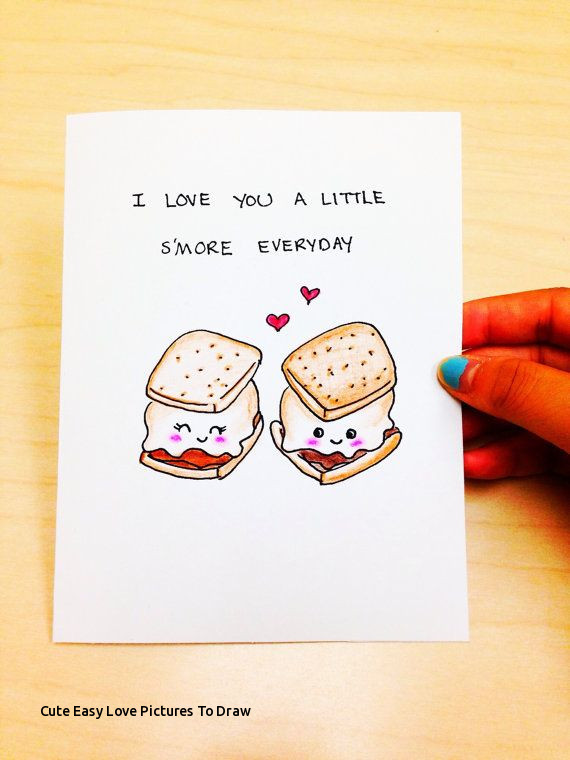 I LOVE YOU A LITTLE
S'MORE EVERYDAY
Cute Easy Love Pictures To Draw